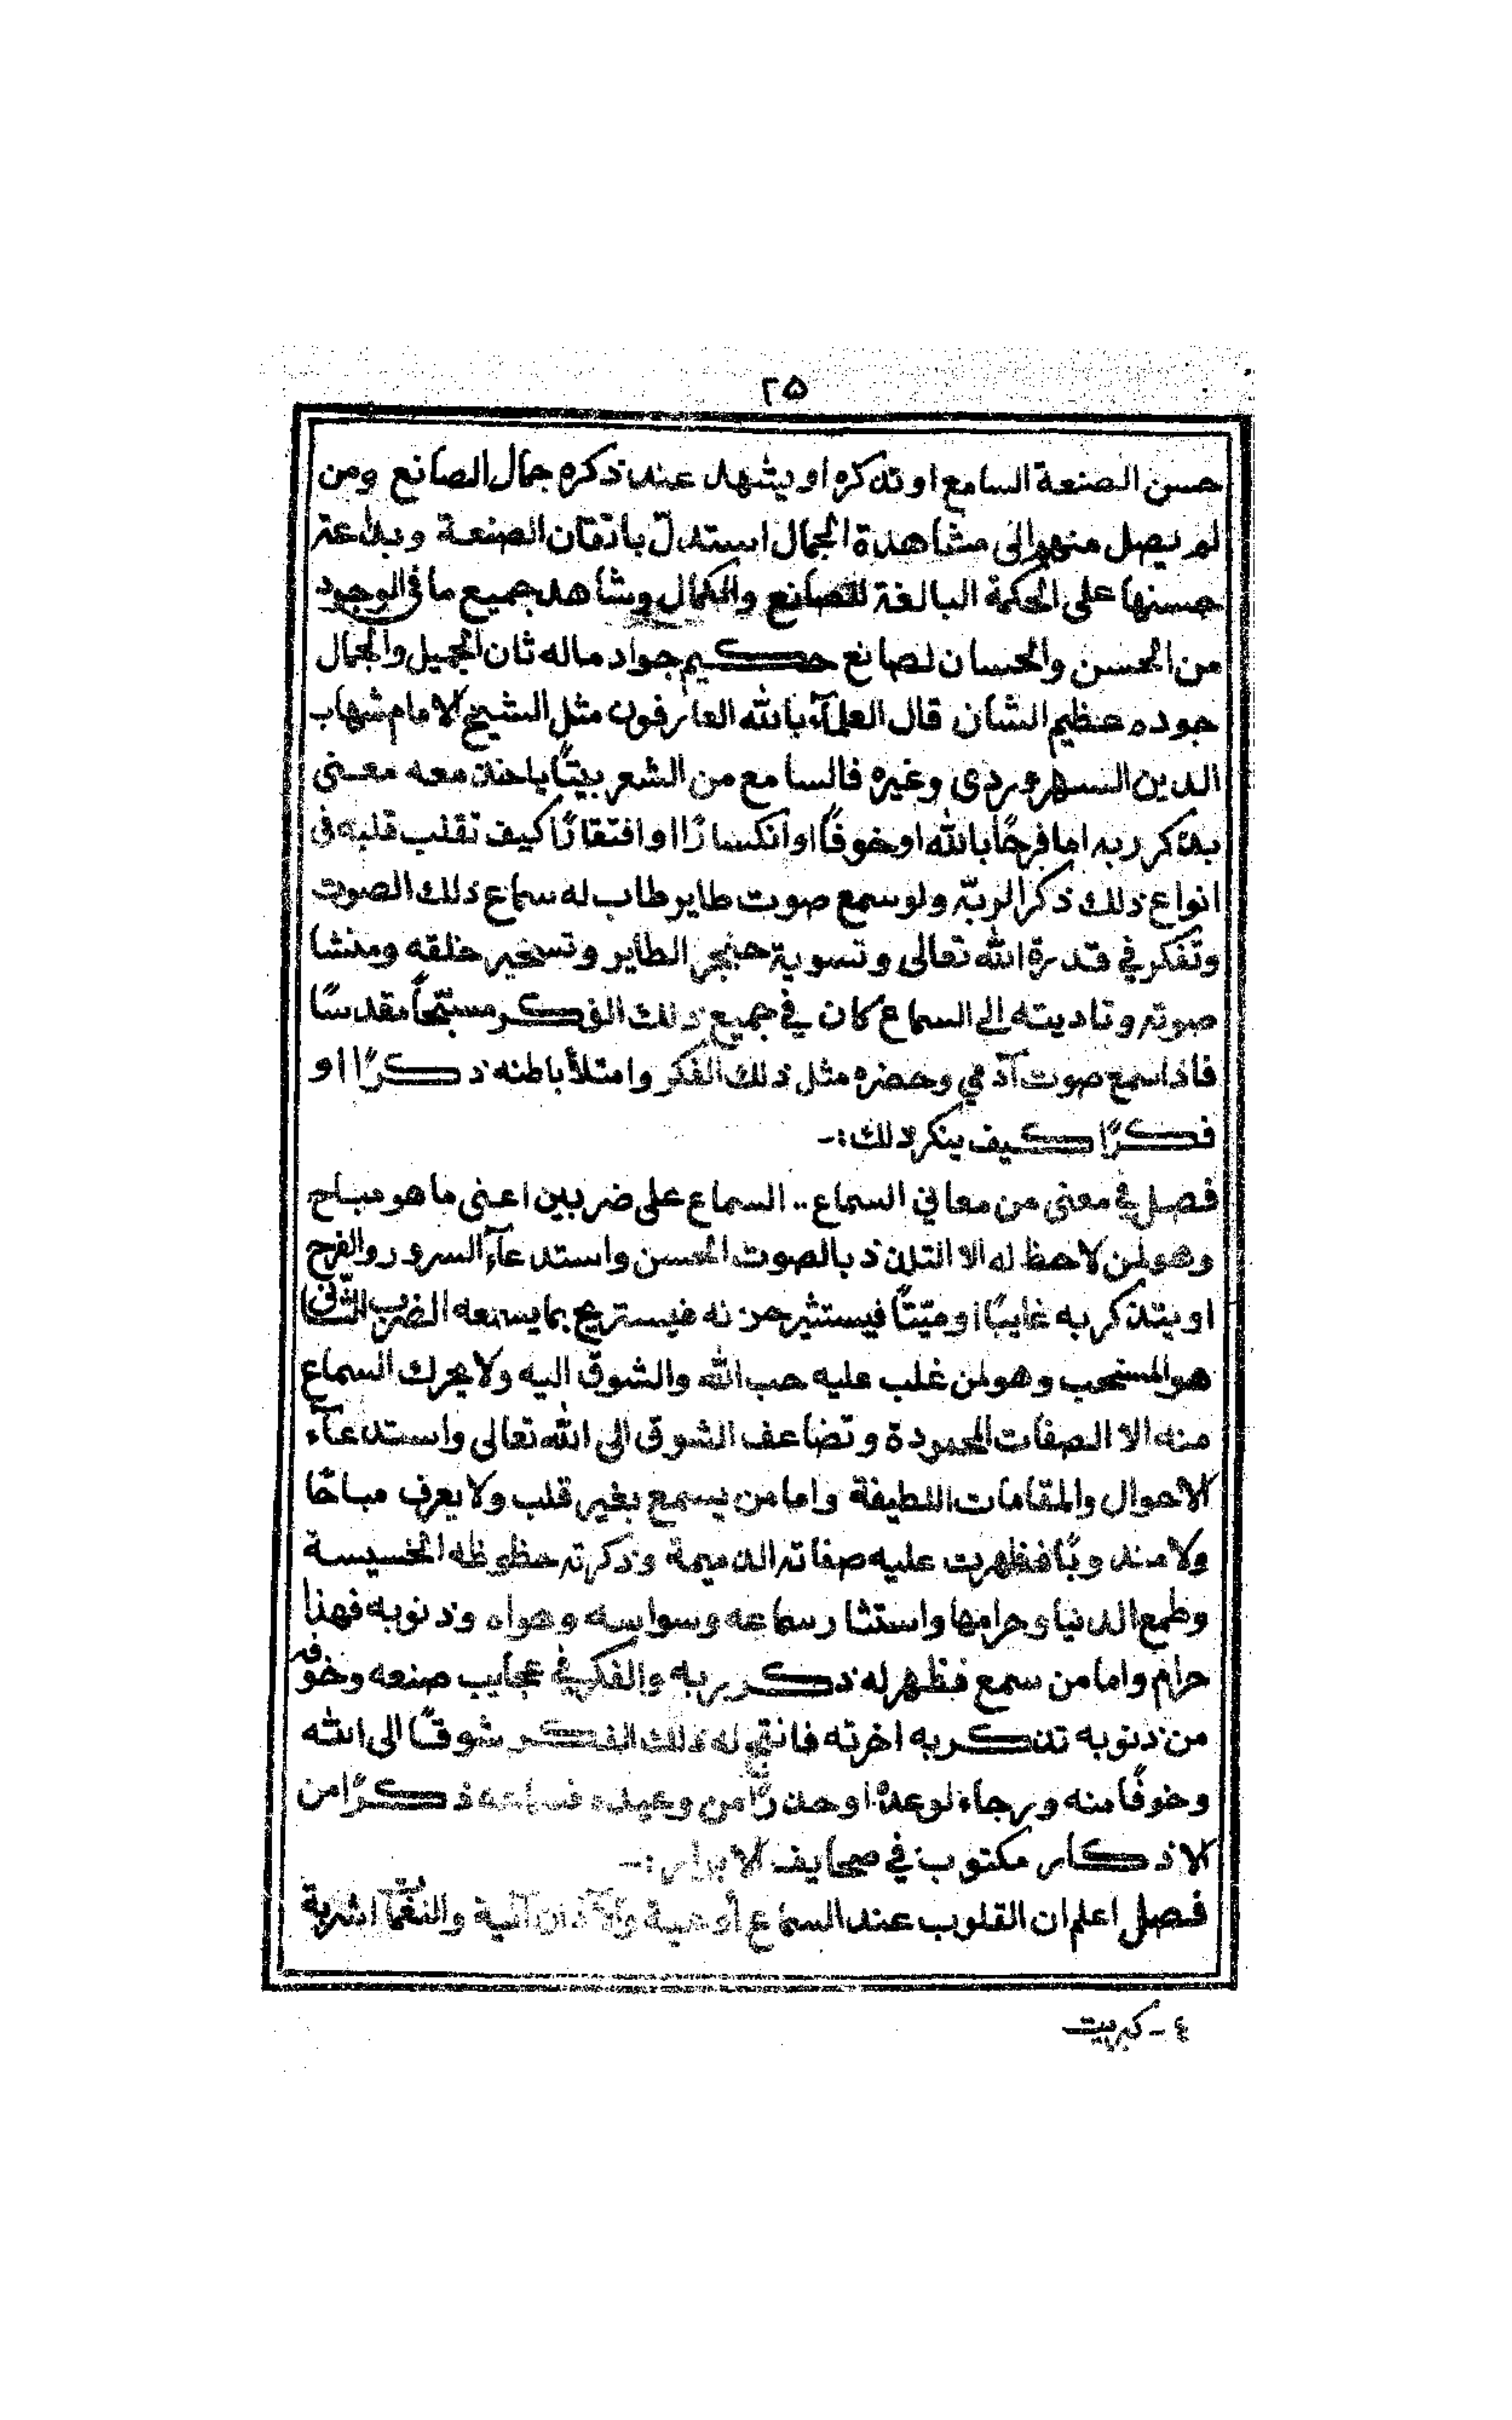 ٢٥
حسن الصنعة السامع او تذكره او يشهد عند ذكره جمال الصانع ومن
لم يصل منهم الى مشاهدة الجمال استدلّ باتقان الصنعة وبلاغة
حسنها على الحكمة البالغة للصانع والكمال وشاهد جميع ما فى الوجود
من الحسن والحسان لصانع حكيم جواد ماله ثان الجميل والجمال
جوده عظيم الشان قال العلمآء بالله العارفون مثل الشيخ الامام شهاب
الدين السهروردى وغيره فالسامع من الشعر بيتًا ياخذ معه معنى
يذكر ربه اما فرحًا بالله او خوفًا او انكسارًا او افتقارًا كيف تقلب قلبه فى
انواع ذلك ذكرا لربّه ولو سمع صوت طاير طاب له سماع ذلك الصوت
وتفكر في قدرة الله تعالى وتسوية حنجر الطاير وتسخير خلقه ومنشا
صوته وتاديته الى السماع كان في جميع ذلك الفكر مسبّحًا مقدسًا
فاذا سمع صوت آدمي وحضره مثل ذلك الفكر وامتلأ باطنه ذكرًا او
فكرًا كيف ينكر ذلك :-
فصل في معنى من معاني السماع .. السماع على ضربين اعنى ما هو مباح
وهو لمن لا حظ له الا التلذذ بالصوت الحسن واستدعآء السرور والفرح
او يتذكر به غايبًا او ميّتًا فيستثير حزنه فيستريح بما يسمعه الضرب الثّانى
هو المستحب وهو لمن غلب عليه حب الله والشوق اليه ولا يحرك السماع
منه الا الصفات المحمودة وتضاعف الشوق الى الله تعالى واستدعآء
الاحوال والمقامات اللطيفة واما من يسمع بغير قلب ولا يعرف مباحًا
ولا مندوبًا فظهرت عليه صفاته الذميمة وذكرته حظوظه الخسيسة
وطمع الدنيا وحرامها واستثار سماعه وسواسه وهواه وذنوبه فهذا
حرام واما من سمع فظهر له ذكر بربه والفكر في عجايب صنعه وخوفه
من ذنوبه تذكر به اخرته فانتج له ذلك الفكر شوقًا الى الله
وخوفًا منه ورجاء لوعده او حذرًا من وعيده فسماعه ذكرًا من
الاذكار مكتوب في صحايف الابرار :-
فصل اعلم ان القلوب عند السماع أوعية والآذان آنية والنغمات اشربة
٤ - كبريت